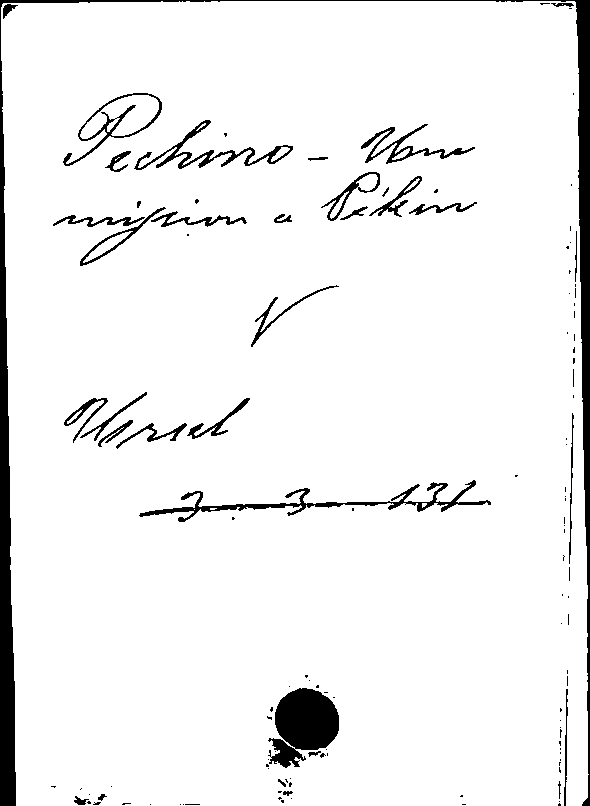 Pechino - Une
mission a Pékin
V
Ursel
3. 3. 131